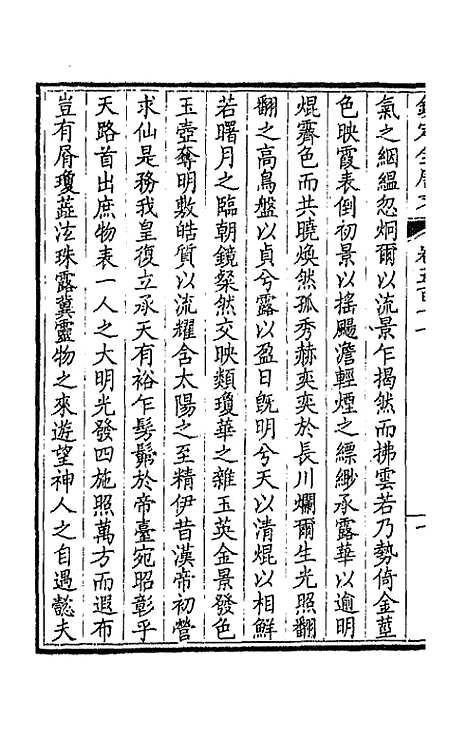 氣之絪緼忽炯爾以流景乍揭然而拂雲若乃勢倚金莖
色映霞表倒初景以搖颺澹輕煙之縹緲承露華以逾明
焜霽色而共曉煥然孤秀赫奕奕於長川爛爾生光照翻
翻之高鳥盤以貞兮露以盈日旣明兮天以清焜以相鮮
若曙月之臨朝鏡粲然交映類瓊華之雜玉英金景發色
玉壺奪明敷皓質以流耀含太陽之至精伊昔漢帝初營
求仙是務我皇復立承天有裕乍髣髴於帝臺宛昭彰乎
天路首出庶物表一人之大明光發四施照萬方而遐布
豈有屑瓊蘂泫珠露冀靈物之來遊望神人之自遇懿夫